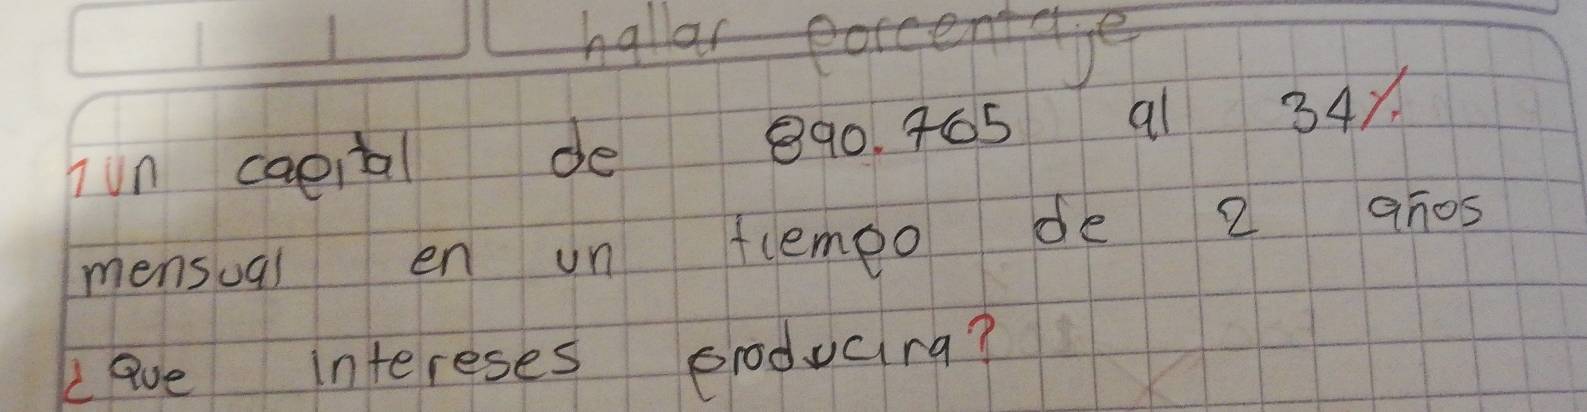 hallar porcentaje
1 un capital de 890.765 al 34%
mensual en un tiempo de 2 años
¿Que intereses producira?